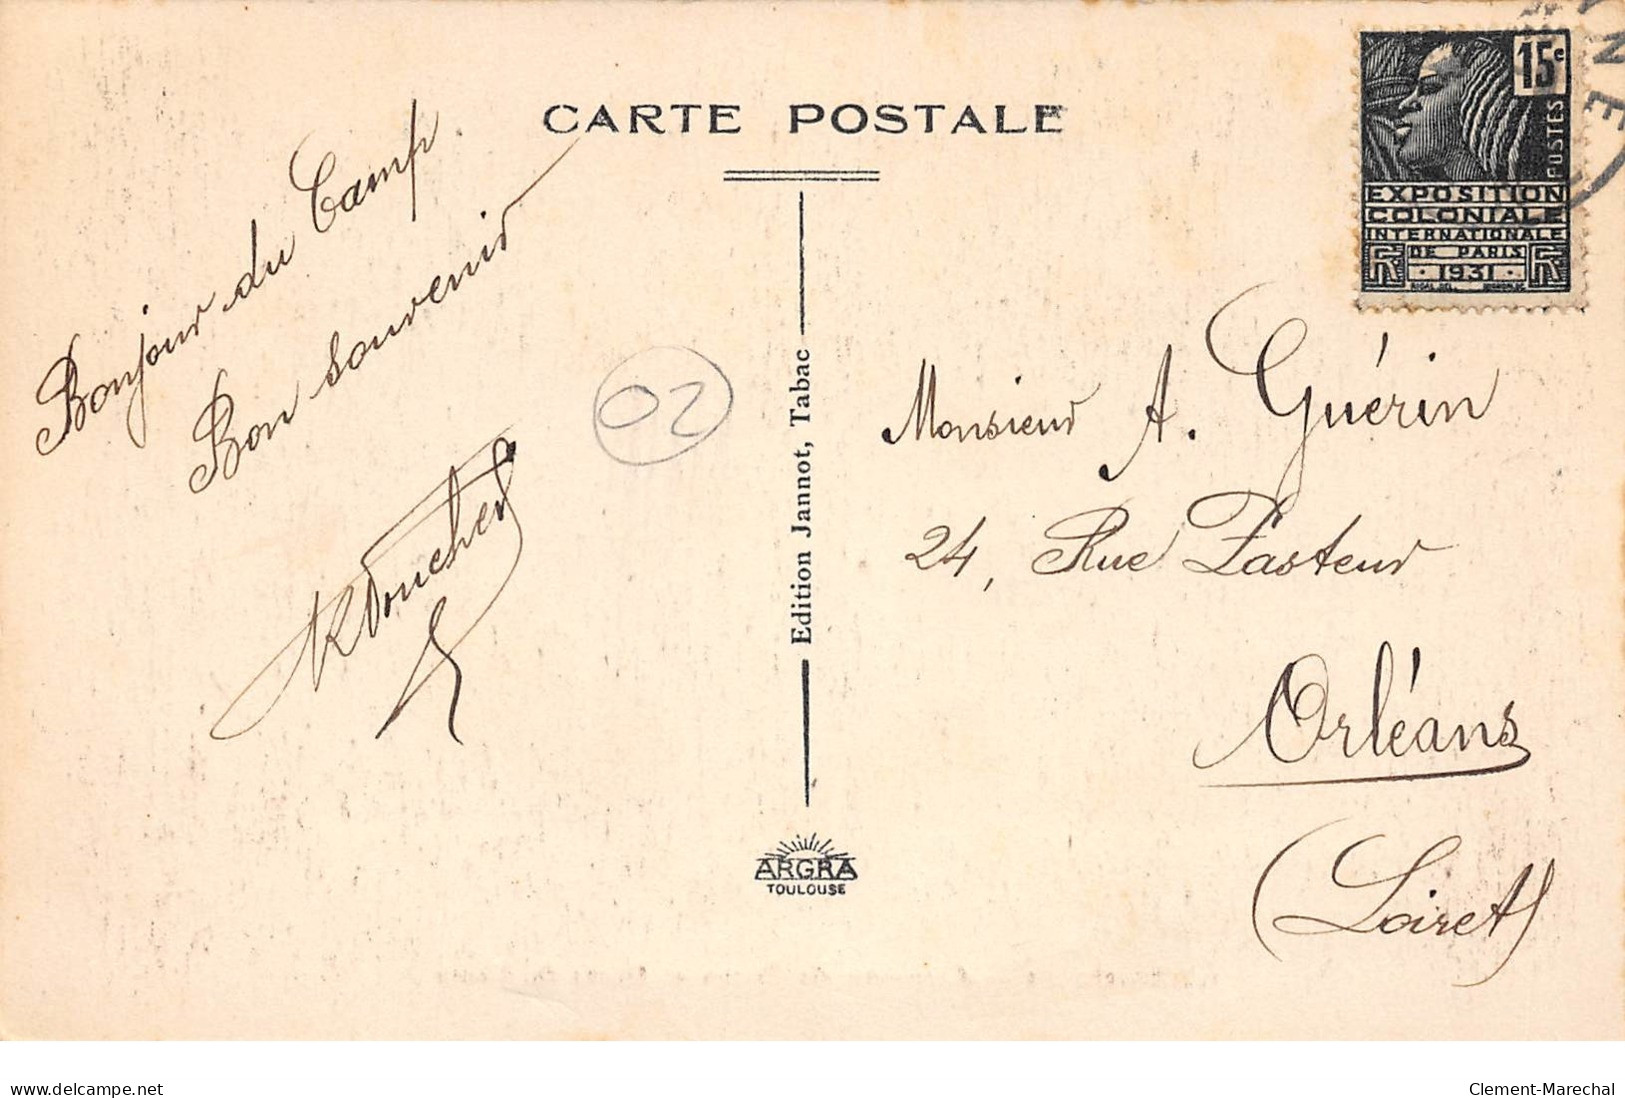 CARTE POSTALE
Bonjour du Camp
Bon souvenir
02
Edition Jannot, Tabac
ARGRA
TOULOUSE
15c
POSTES
EXPOSITION
COLONIALE
INTERNATIONALE
DE PARIS
RF · 1931 · RF
NE
Monsieur A. Guérin
24, Rue Pasteur
Orléans
(Loiret)
www.delcampe.net
Clement-Marechal